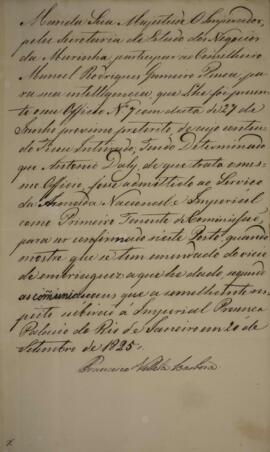 Manda Sua Magestade O Imperador,
pela Secretaria de Estado dos Negocios
da Marinha, participar ao Conselheiro
Manuel Rodrigues Gameiro Pessoa, para
sua intelligencia, que Lhe foi presen-
te o seu Officio Nº 7 com data de 27 de
Junho proximo preterito, de cujo conteu-
do ficou Inteirado, Tendo Determinado
que Antonio Daly, de que trata o mes-
mo Officio, fosse admittido ao Serviço
da Armada Nacional e Imperial
como Primeiro Tenente de Commissão,
para ser confirmado neste Porto, quando
mostre que se tem emendado do vicio
de embriaguez a que he dado, segundo
as comunicaçoens que a semelhante res-
peito subirão a Imperial Presença
Palacio do Rio de Janeiro em 20 de
Setembro de 1825.
Francisco Villela Barboza